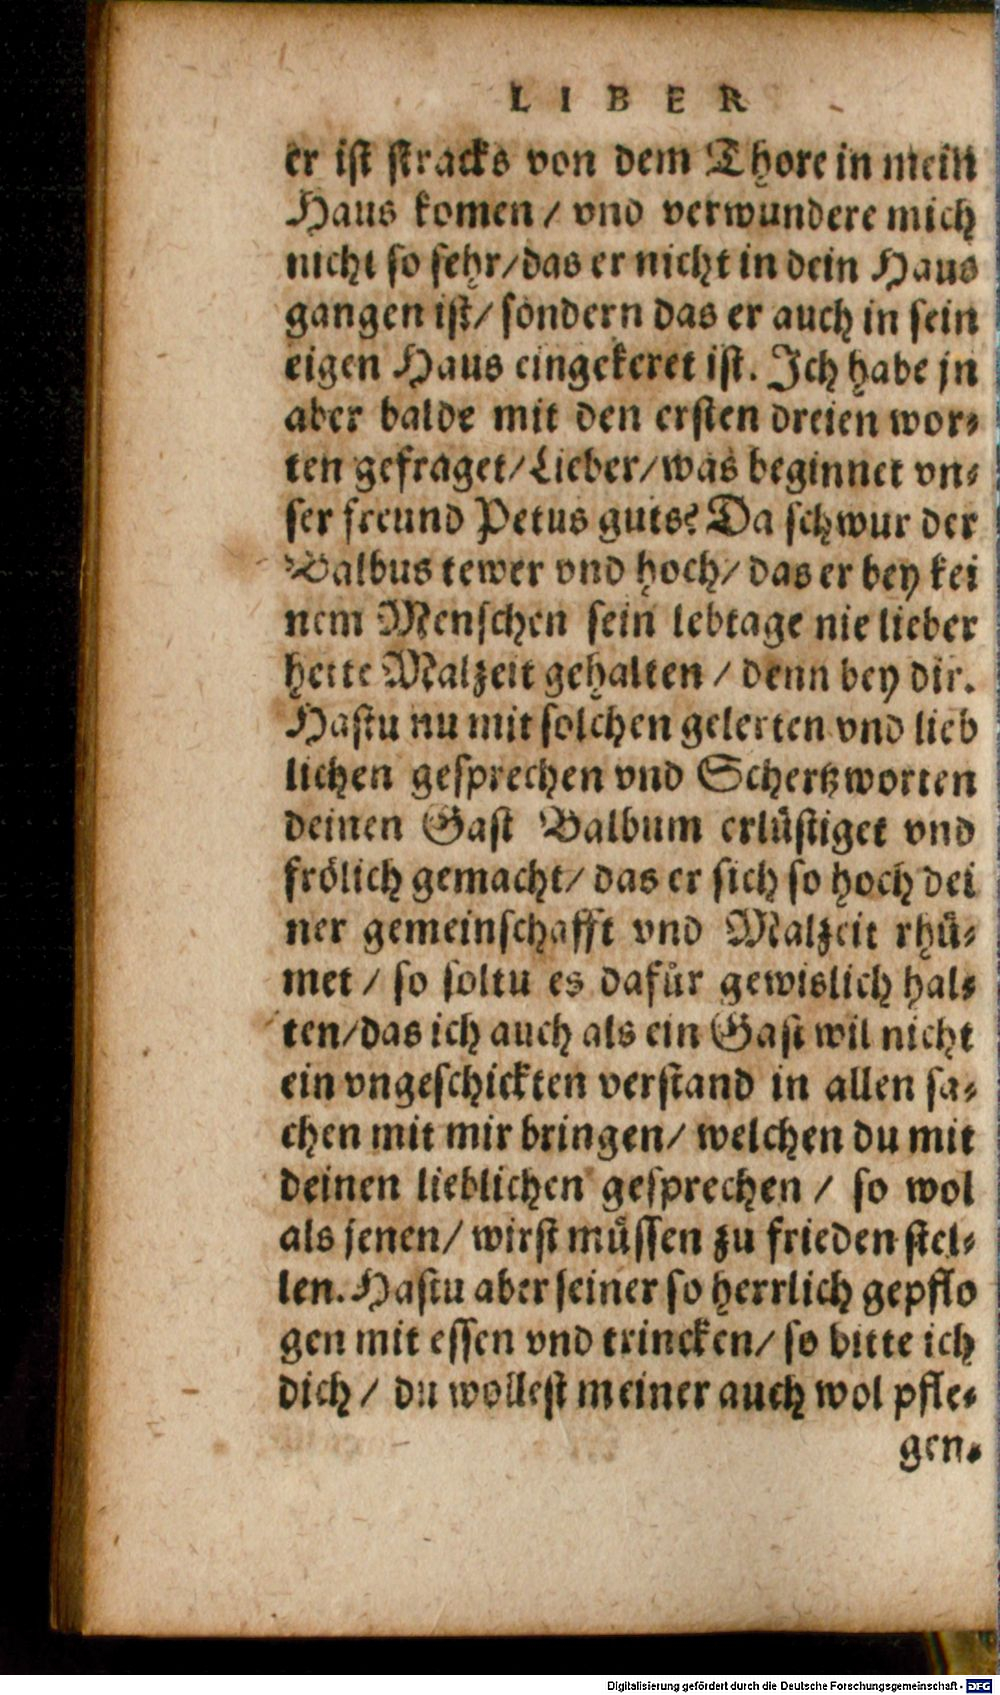 LIBER
er ist stracks von dem Thore in mein
Haus komen / vnd verwundere mich
nicht so sehr/das er nicht in dein Haus
gangen ist/ sondern das er auch in sein
eigen Haus eingekeret ist. Ich habe jn
aber balde mit den ersten dreien wor-
ten gefraget/Lieber/was beginnet vn-
ser freund Petus guts? Da schwur der
Balbus tewer vnd hoch/ das er bey kei
nem Menschen sein lebtage nie lieber
hette Malzeit gehalten / denn bey dir.
Hastu nu mit solchen gelerten vnd lieb
lichen gesprechen vnd Schertzworten
deinen Gast Balbum erlüstiget vnd
frölich gemacht/ das er sich so hoch dei
ner gemeinschafft vnd Malzeit rhü-
met / so soltu es dafür gewislich hal-
ten/das ich auch als ein Gast wil nicht
ein vngeschickten verstand in allen sa-
chen mit mir bringen/ welchen du mit
deinen lieblichen gesprechen / so wol
als jenen/ wirst müssen zu frieden stel-
len. Hastu aber seiner so herrlich gepflo
gen mit essen vnd trincken/ so bitte ich
dich / du wollest meiner auch wol pfle-
gen.
Digitalisierung gefördert durch die Deutsche Forschungsgemeinschaft - DFG